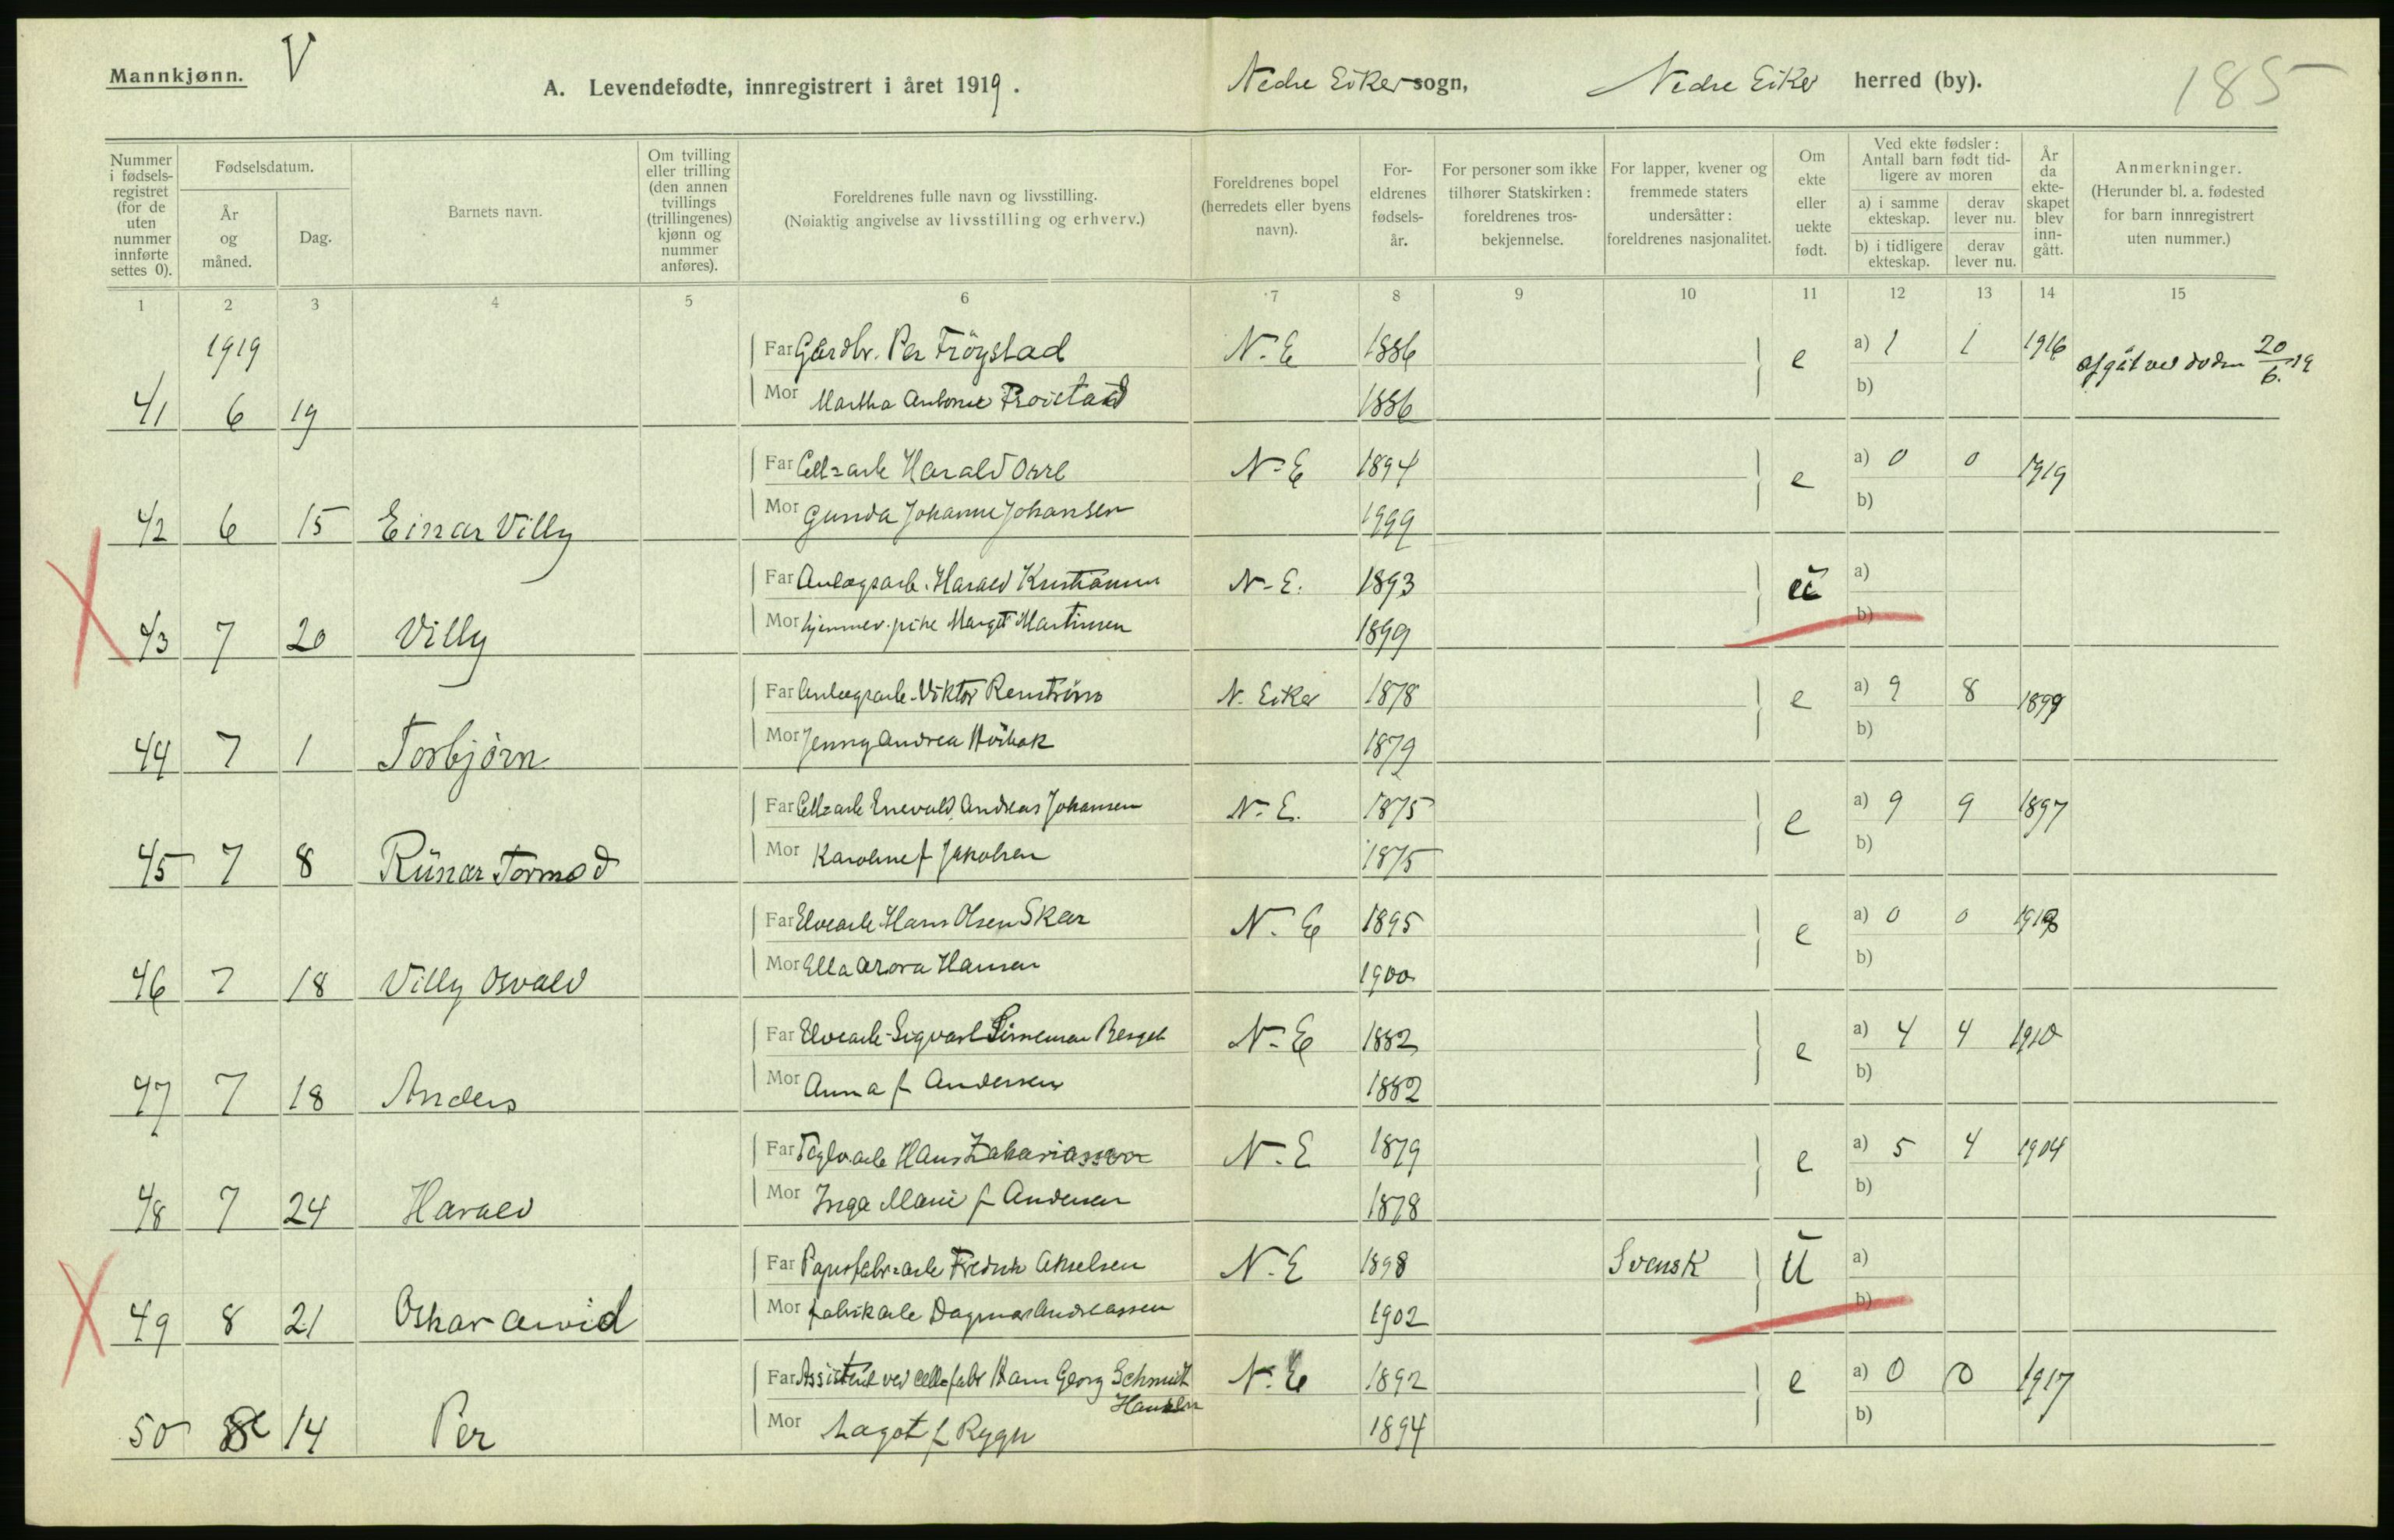 Mannkjønn. V
A. Levendefødte, innregistrert i året 1919. Nedre Eiker sogn, Nedre Eiker herred (by). 185
Nummer i fødsels-registret (for de uten nummer innførte settes 0).
Fødselsdatum.
År og måned.
Dag.
Barnets navn.
Om tvilling eller trilling (den annen tvillings (trillingenes) kjønn og nummer anføres).
Foreldrenes fulle navn og livsstilling.
(Nøiaktig angivelse av livsstilling og erhverv.)
Foreldrenes bopel (herredets eller byens navn).
For-eldrenes fødsels-år.
For personer som ikke tilhører Statskirken: foreldrenes tros-bekjennelse.
For lapper, kvener og fremmede staters undersåtter: foreldrenes nasjonalitet.
Om ekte eller uekte født.
Ved ekte fødsler: Antall barn født tid-ligere av moren
a) i samme ekteskap.
derav lever nu.
b) i tidligere ekteskap.
derav lever nu.
År da ekte-skapet blev inn-gått.
Anmerkninger.
(Herunder bl. a. fødested for barn innregistrert uten nummer.)
1 2 3 4 5 6 7 8 9 10 11 12 13 14 15
1919 Far Gardbr. Per Frøystad N.E 1886 e a) 1 1 1916 afgåt ved døden 20/6.19
41 6 19 Mor Martha Antonie 1886 b)
Far Cell=arb Harald Orre N-E 1894 e a) 0 0 1919
42 6 15 Einar Villy Mor Gunda Johanne Johansen 1999 b)
Far Anlægsarb. Harald Kristiansen N-E. 1893 a)
43 7 20 Villy Mor hjemmev. pike Margit Martinsen 1899 b)
Far Anlægsarb. Viktor Renström N. Eiker 1878 e a) 9 8 1899
44 7 1 Torbjörn Mor Jenny Andrea 1879 b)
Far Cell=arb Enevald Andreas Johansen N-E. 1875 e a) 9 9 1897
45 7 8 Rünar Tormod Mor Karoline f Jakobsen 1875 b)
Far Elvearb Hans Olsen Skar N.E 1895 e a) 0 0 1918
46 7 18 Villy Osvald Mor Ella Arora Hansen 1900 b)
Far Elvearb Sigvart Simensen N-E 1882 e a) 4 4 1910
47 7 18 Anders Mor Anna f Andersen 1882 b)
Far Teglv.arb Hans Zakariassen N.E 1879 e a) 5 4 1904
48 7 24 Harald Mor Inga Marie f Andersen 1878 b)
Far Papirfabr=arb Fredrik Akselsen N.E 1898 Svensk Ü a)
49 8 21 Oskar Arvid Mor fabrikarb Dagmar Andreassen 1902 b)
Far Assistent ved cell=fabr Hans Georg Schmidt N.E 1892 e a) 0 0 1917
Hansen
50 8 14 Per Mor f Rygh 1894 b)